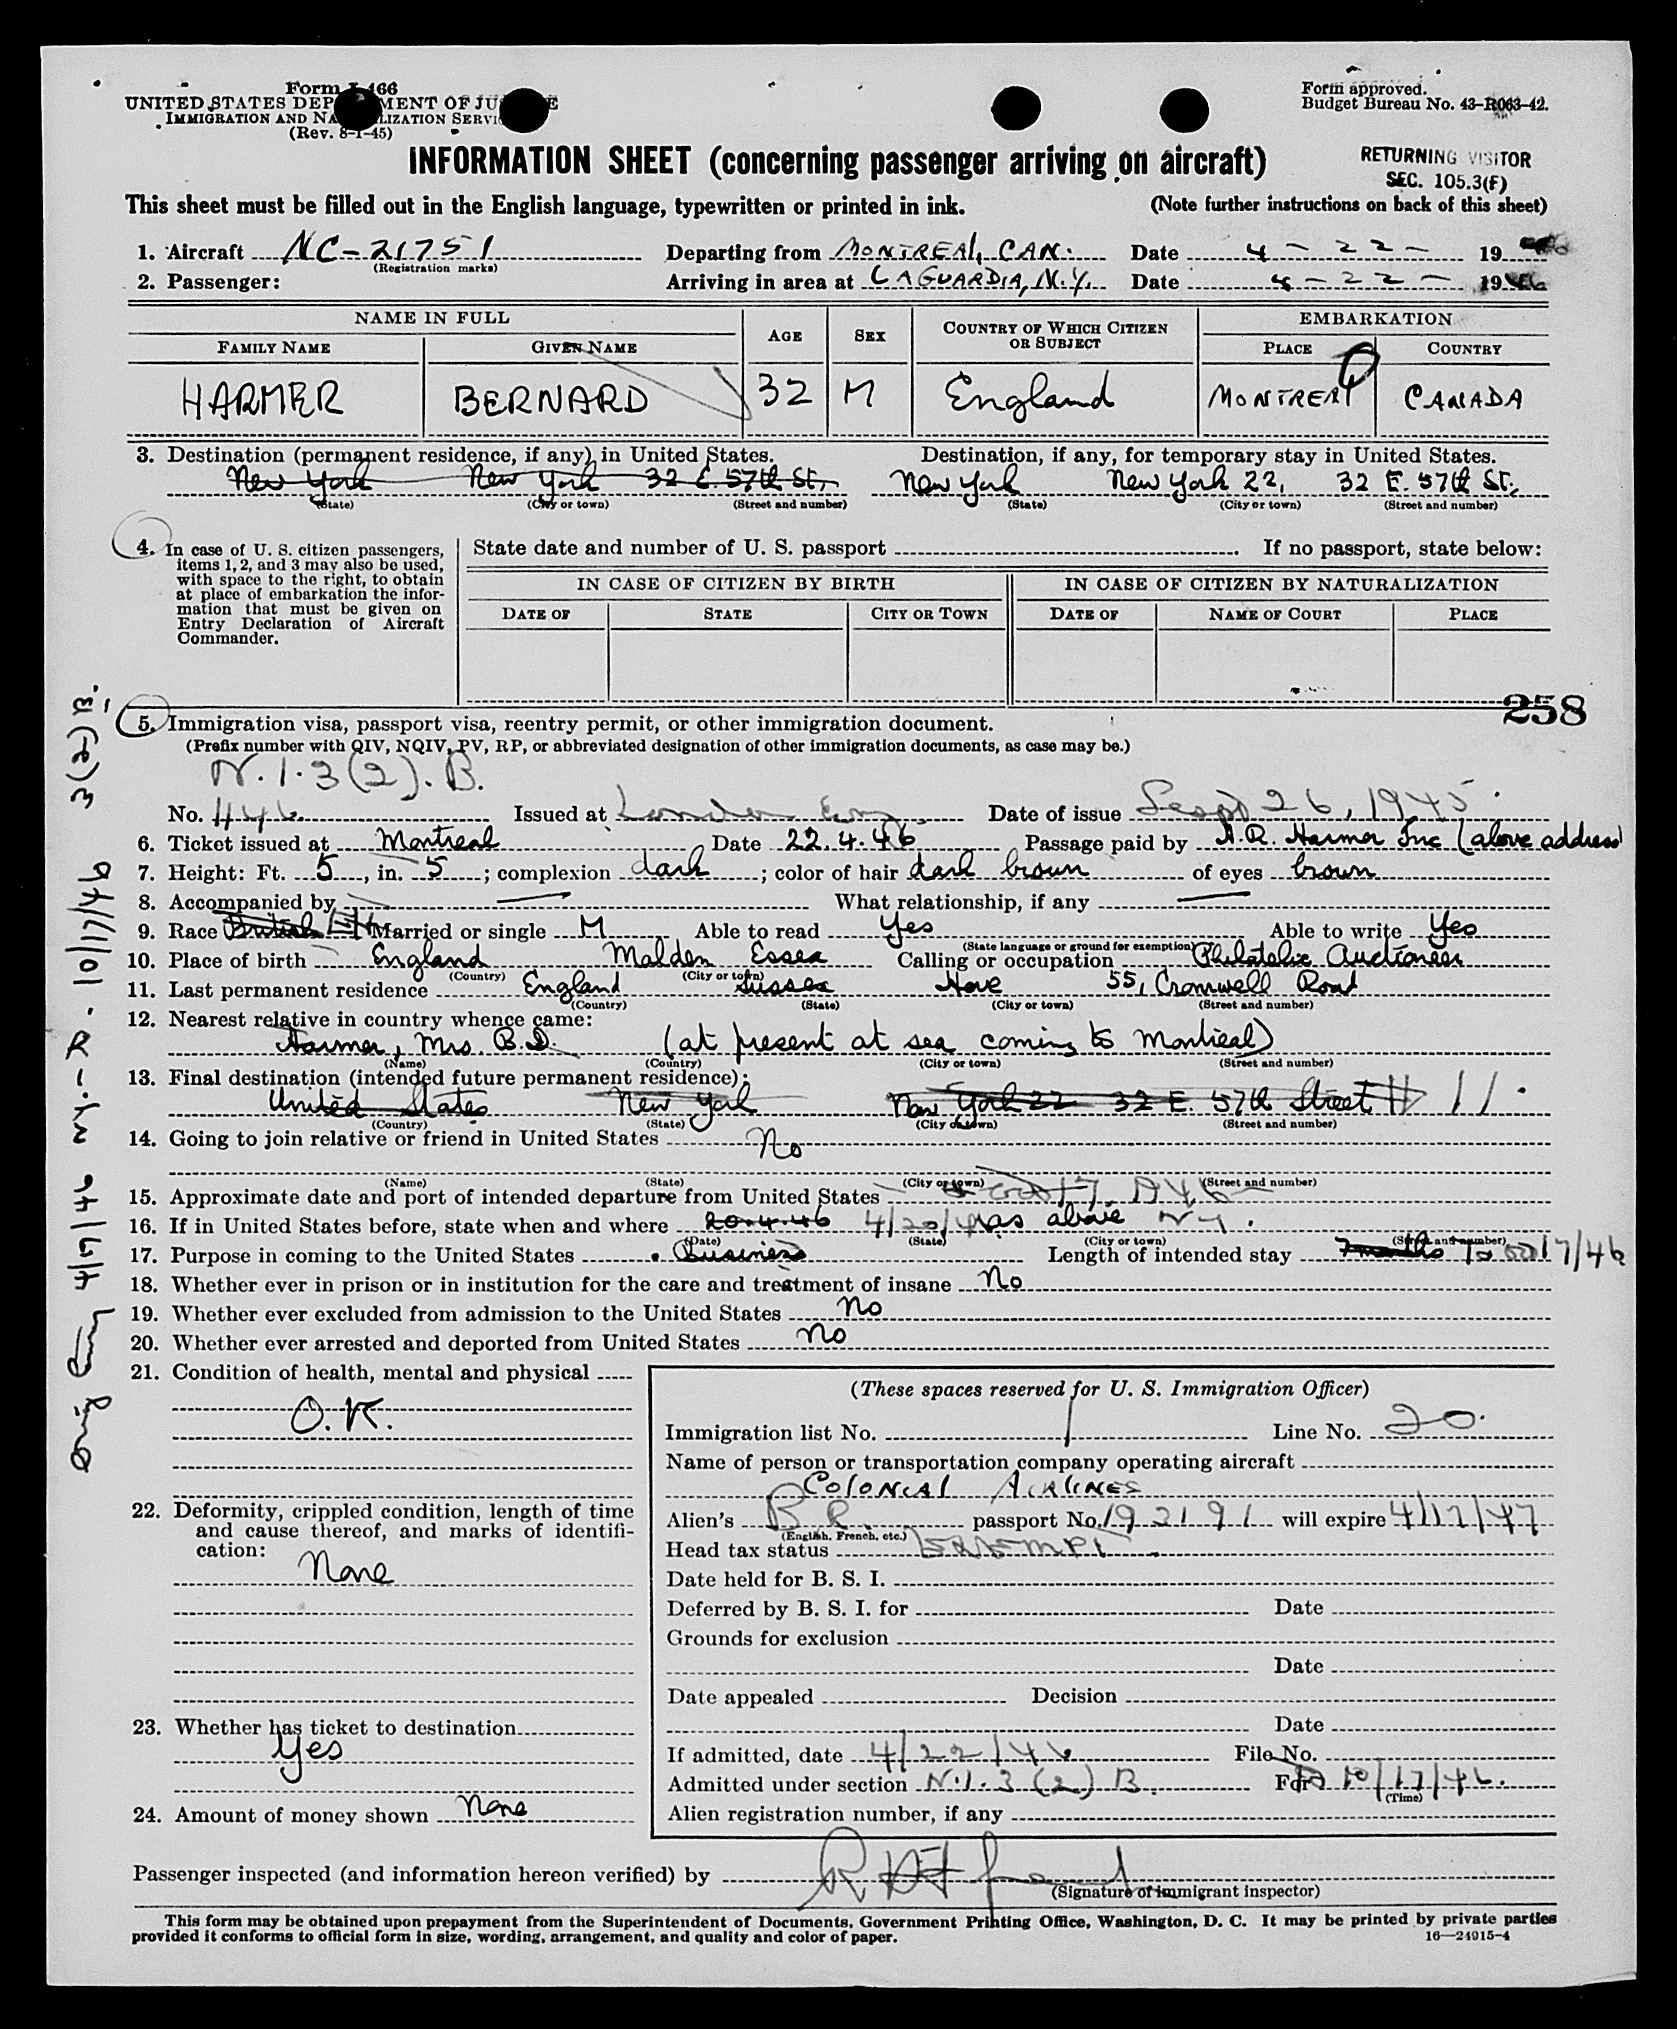 Form I-466
UNITED STATES DEPARTMENT OF JUSTICE
IMMIGRATION AND NATURALIZATION SERVICE
(Rev. 8-1-45)
Form approved.
Budget Bureau No. 43-R063-42.
INFORMATION SHEET (concerning passenger arriving on aircraft)
RETURNING VISITOR
SEC. 105.3(F)
This sheet must be filled out in the English language, typewritten or printed in ink. (Note further instructions on back of this sheet)
1. Aircraft NC-21751 Departing from MONTREAL, CAN. Date 4-22- 19
(Registration marks)
2. Passenger: Arriving in area at LAGUARDIA, N.Y. Date 4-22- 1946
NAME IN FULL AGE SEX COUNTRY OF WHICH CITIZEN OR SUBJECT EMBARKATION
FAMILY NAME GIVEN NAME PLACE COUNTRY
HARMER BERNARD 32 M England MONTREAL CANADA
3. Destination (permanent residence, if any) in United States. Destination, if any, for temporary stay in United States.
New York New York 32 E. 57th St. New York New York 22, 32 E. 57th St.
(State) (City or town) (Street and number) (State) (City or town) (Street and number)
4. In case of U. S. citizen passengers,
items 1, 2, and 3 may also be used,
with space to the right, to obtain
at place of embarkation the infor-
mation that must be given on
Entry Declaration of Aircraft
Commander.
State date and number of U. S. passport . If no passport, state below:
IN CASE OF CITIZEN BY BIRTH IN CASE OF CITIZEN BY NATURALIZATION
DATE OF STATE CITY OR TOWN DATE OF NAME OF COURT PLACE
258
5. Immigration visa, passport visa, reentry permit, or other immigration document.
(Prefix number with QIV, NQIV, PV, RP, or abbreviated designation of other immigration documents, as case may be.)
N.I.3(2).B.
No. 446 Issued at London Eng. Date of issue Sept 26, 1945.
6. Ticket issued at Montreal Date 22.4.46 Passage paid by H.R. Harmer Inc (above address)
7. Height: Ft. 5, in. 5; complexion dark; color of hair dark brown of eyes brown
8. Accompanied by — What relationship, if any —
9. Race British Married or single M Able to read Yes Able to write Yes
(State language or ground for exemption)
10. Place of birth England Maldon Essex Calling or occupation Philatelic Auctioneer
(Country) (City or town)
11. Last permanent residence England Sussex Hove 55, Cromwell Road
(Country) (State) (City or town) (Street and number)
12. Nearest relative in country whence came:
Harmer, Mrs. B.D. (at present at sea coming to Montreal)
(Name) (Country) (City or town) (Street and number)
13. Final destination (intended future permanent residence):
United States New York New York 22 32 E. 57th Street # 11.
(Country) (State) (City or town) (Street and number)
14. Going to join relative or friend in United States No
(Name) (State) (City or town) (Street and number)
15. Approximate date and port of intended departure from United States Oct 17, 1946
16. If in United States before, state when and where 20.4.46 4/20/46 as above NY.
(Date) (State) (City or town) (Street and number)
17. Purpose in coming to the United States Business Length of intended stay 7 months To Oct 17/46
18. Whether ever in prison or in institution for the care and treatment of insane No
19. Whether ever excluded from admission to the United States No
20. Whether ever arrested and deported from United States No
21. Condition of health, mental and physical
O.K.
22. Deformity, crippled condition, length of time
and cause thereof, and marks of identifi-
cation:
None
23. Whether has ticket to destination
Yes
24. Amount of money shown None
(These spaces reserved for U. S. Immigration Officer)
Immigration list No. 1 Line No. 20.
Name of person or transportation company operating aircraft
COLONIAL AIRLINES
Alien's BR. passport No. 192191 will expire 4/17/47
(English, French, etc.)
Head tax status EXEMPT
Date held for B. S. I.
Deferred by B. S. I. for Date
Grounds for exclusion
Date
Date appealed Decision
Date
If admitted, date 4/22/46 File No.
Admitted under section N.I.3(2)B. For To 10/17/46.
(Time)
Alien registration number, if any
Passenger inspected (and information hereon verified) by
(Signature of immigrant inspector)
This form may be obtained upon prepayment from the Superintendent of Documents, Government Printing Office, Washington, D. C. It may be printed by private parties
provided it conforms to official form in size, wording, arrangement, and quality and color of paper.
16—24915-4